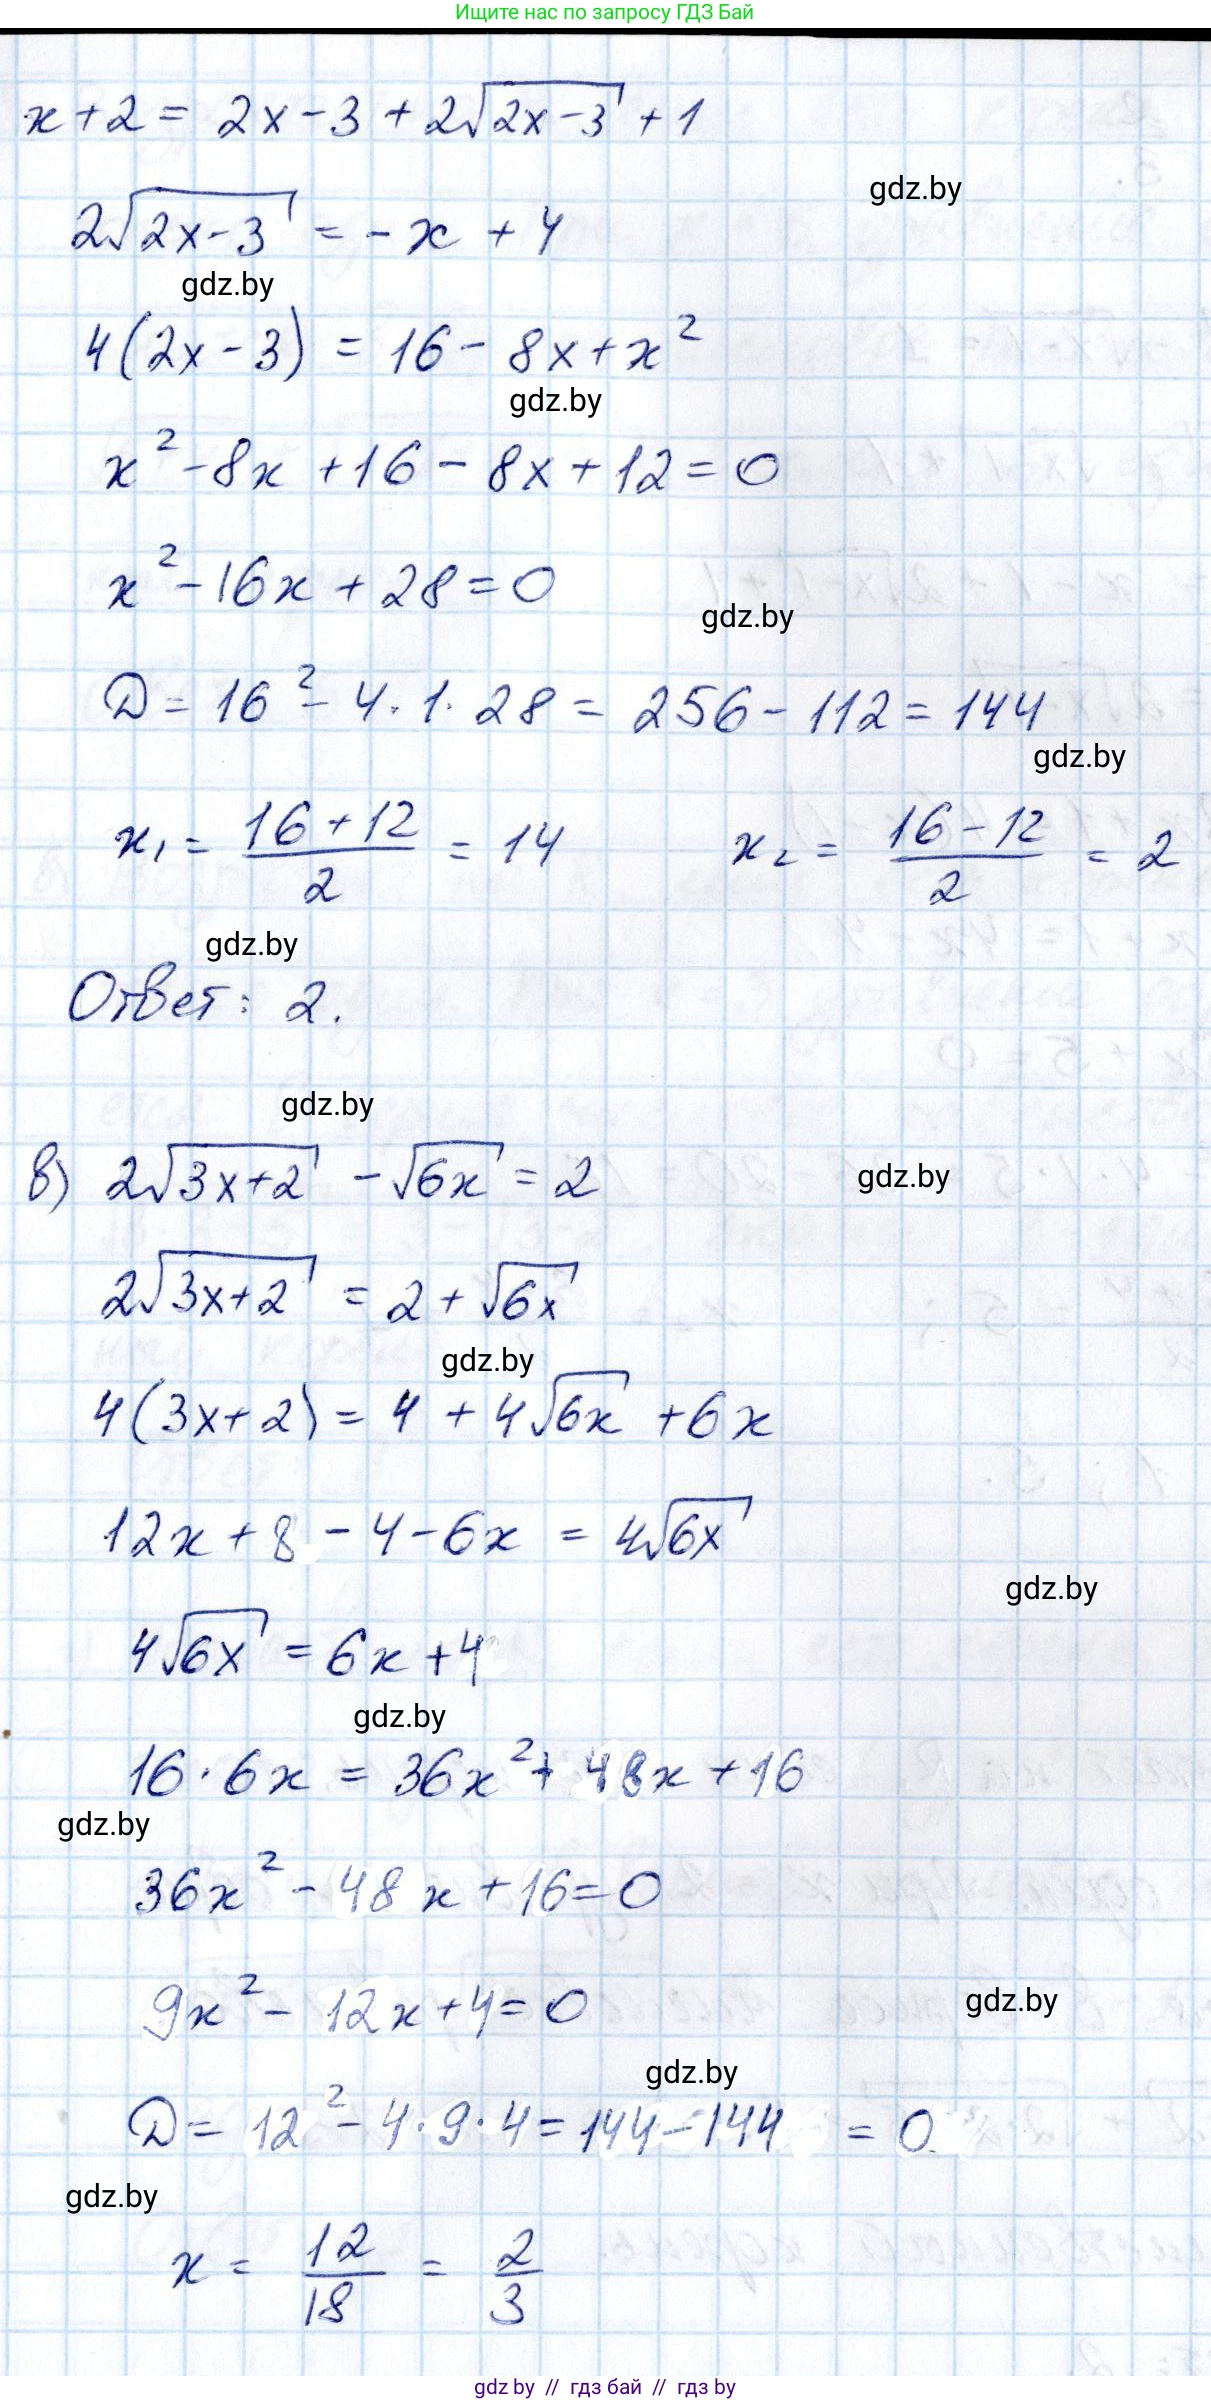 Ищите нас по запросу ГДЗ Бай
x + 2 = 2x - 3 + 2√(2x-3) + 1
gdz.by
2√(2x-3) = -x + 4
gdz.by
4(2x - 3) = 16 - 8x + x²
gdz.by
x² - 8x + 16 - 8x + 12 = 0
x² - 16x + 28 = 0
gdz.by
D = 16² - 4·1·28 = 256 - 112 = 144
gdz.by
x₁ = (16+12)/2 = 14 x₂ = (16-12)/2 = 2
gdz.by
Ответ: 2.
gdz.by
в) 2√(3x+2) - √(6x) = 2
gdz.by
2√(3x+2) = 2 + √(6x)
gdz.by
4(3x+2) = 4 + 4√(6x) + 6x
12x + 8 - 4 - 6x = 4√(6x)
gdz.by
4√(6x) = 6x + 4
gdz.by
16·6x = 36x² + 48x + 16
gdz.by
36x² - 48x + 16 = 0
9x² - 12x + 4 = 0
gdz.by
gdz.by
D = 12² - 4·9·4 = 144 - 144 = 0
gdz.by
x = 12/18 = 2/3
gdz by // гдз бай // гдз by